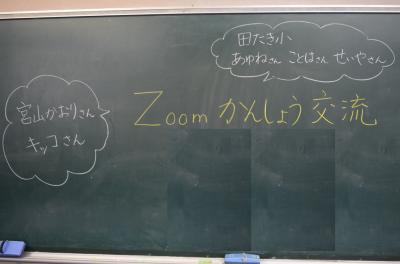 田たき小
あゆねさん ことはさん せいやさん
宮山かおりさん
キッコさん
Zoomかんしょう交流